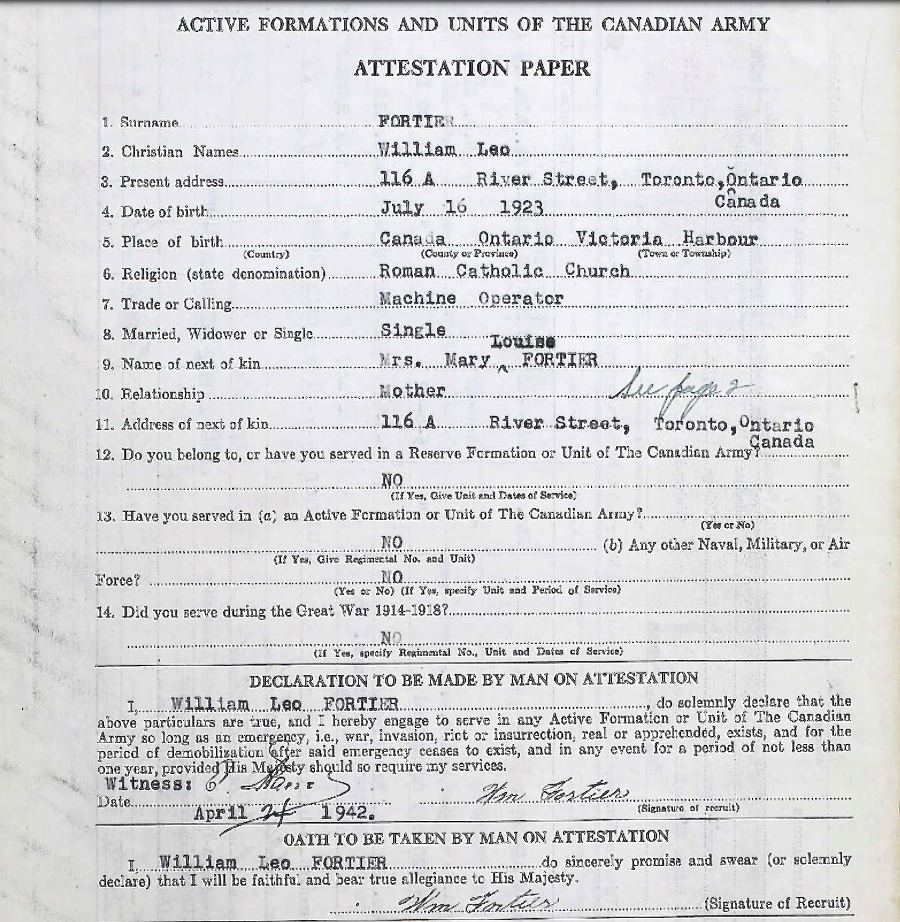 ACTIVE FORMATIONS AND UNITS OF THE CANADIAN ARMY
ATTESTATION PAPER
1. Surname FORTIER
2. Christian Names William Leo
3. Present address 116 A River Street, Toronto, Ontario
Canada
4. Date of birth July 16 1923
5. Place of birth Canada Ontario Victoria Harbour
(Country) (County or Province) (Town or Township)
6. Religion (state denomination) Roman Catholic Church
7. Trade or Calling Machine Operator
8. Married, Widower or Single Single
Louise
9. Name of next of kin Mrs. Mary ^ FORTIER
10. Relationship Mother See page 2
11. Address of next of kin 116 A River Street, Toronto, Ontario
Canada
12. Do you belong to, or have you served in a Reserve Formation or Unit of The Canadian Army?
NO
(If Yes, Give Unit and Dates of Service)
13. Have you served in (a) an Active Formation or Unit of The Canadian Army?
(Yes or No)
NO (b) Any other Naval, Military, or Air
(If Yes, Give Regimental No. and Unit)
Force? NO
(Yes or No) (If Yes, specify Unit and Period of Service)
14. Did you serve during the Great War 1914-1918?
NO
(If Yes, specify Regimental No., Unit and Dates of Service)
DECLARATION TO BE MADE BY MAN ON ATTESTATION
I, William Leo FORTIER, do solemnly declare that the
above particulars are true, and I hereby engage to serve in any Active Formation or Unit of The Canadian
Army so long as an emergency, i.e., war, invasion, riot or insurrection, real or apprehended, exists, and for the
period of demobilization after said emergency ceases to exist, and in any event for a period of not less than
one year, provided His Majesty should so require my services.
Witness:
Wm Fortier
Date April 1942.
(Signature of recruit)
OATH TO BE TAKEN BY MAN ON ATTESTATION
I, William Leo FORTIER do sincerely promise and swear (or solemnly
declare) that I will be faithful and bear true allegiance to His Majesty.
Wm Fortier (Signature of Recruit)